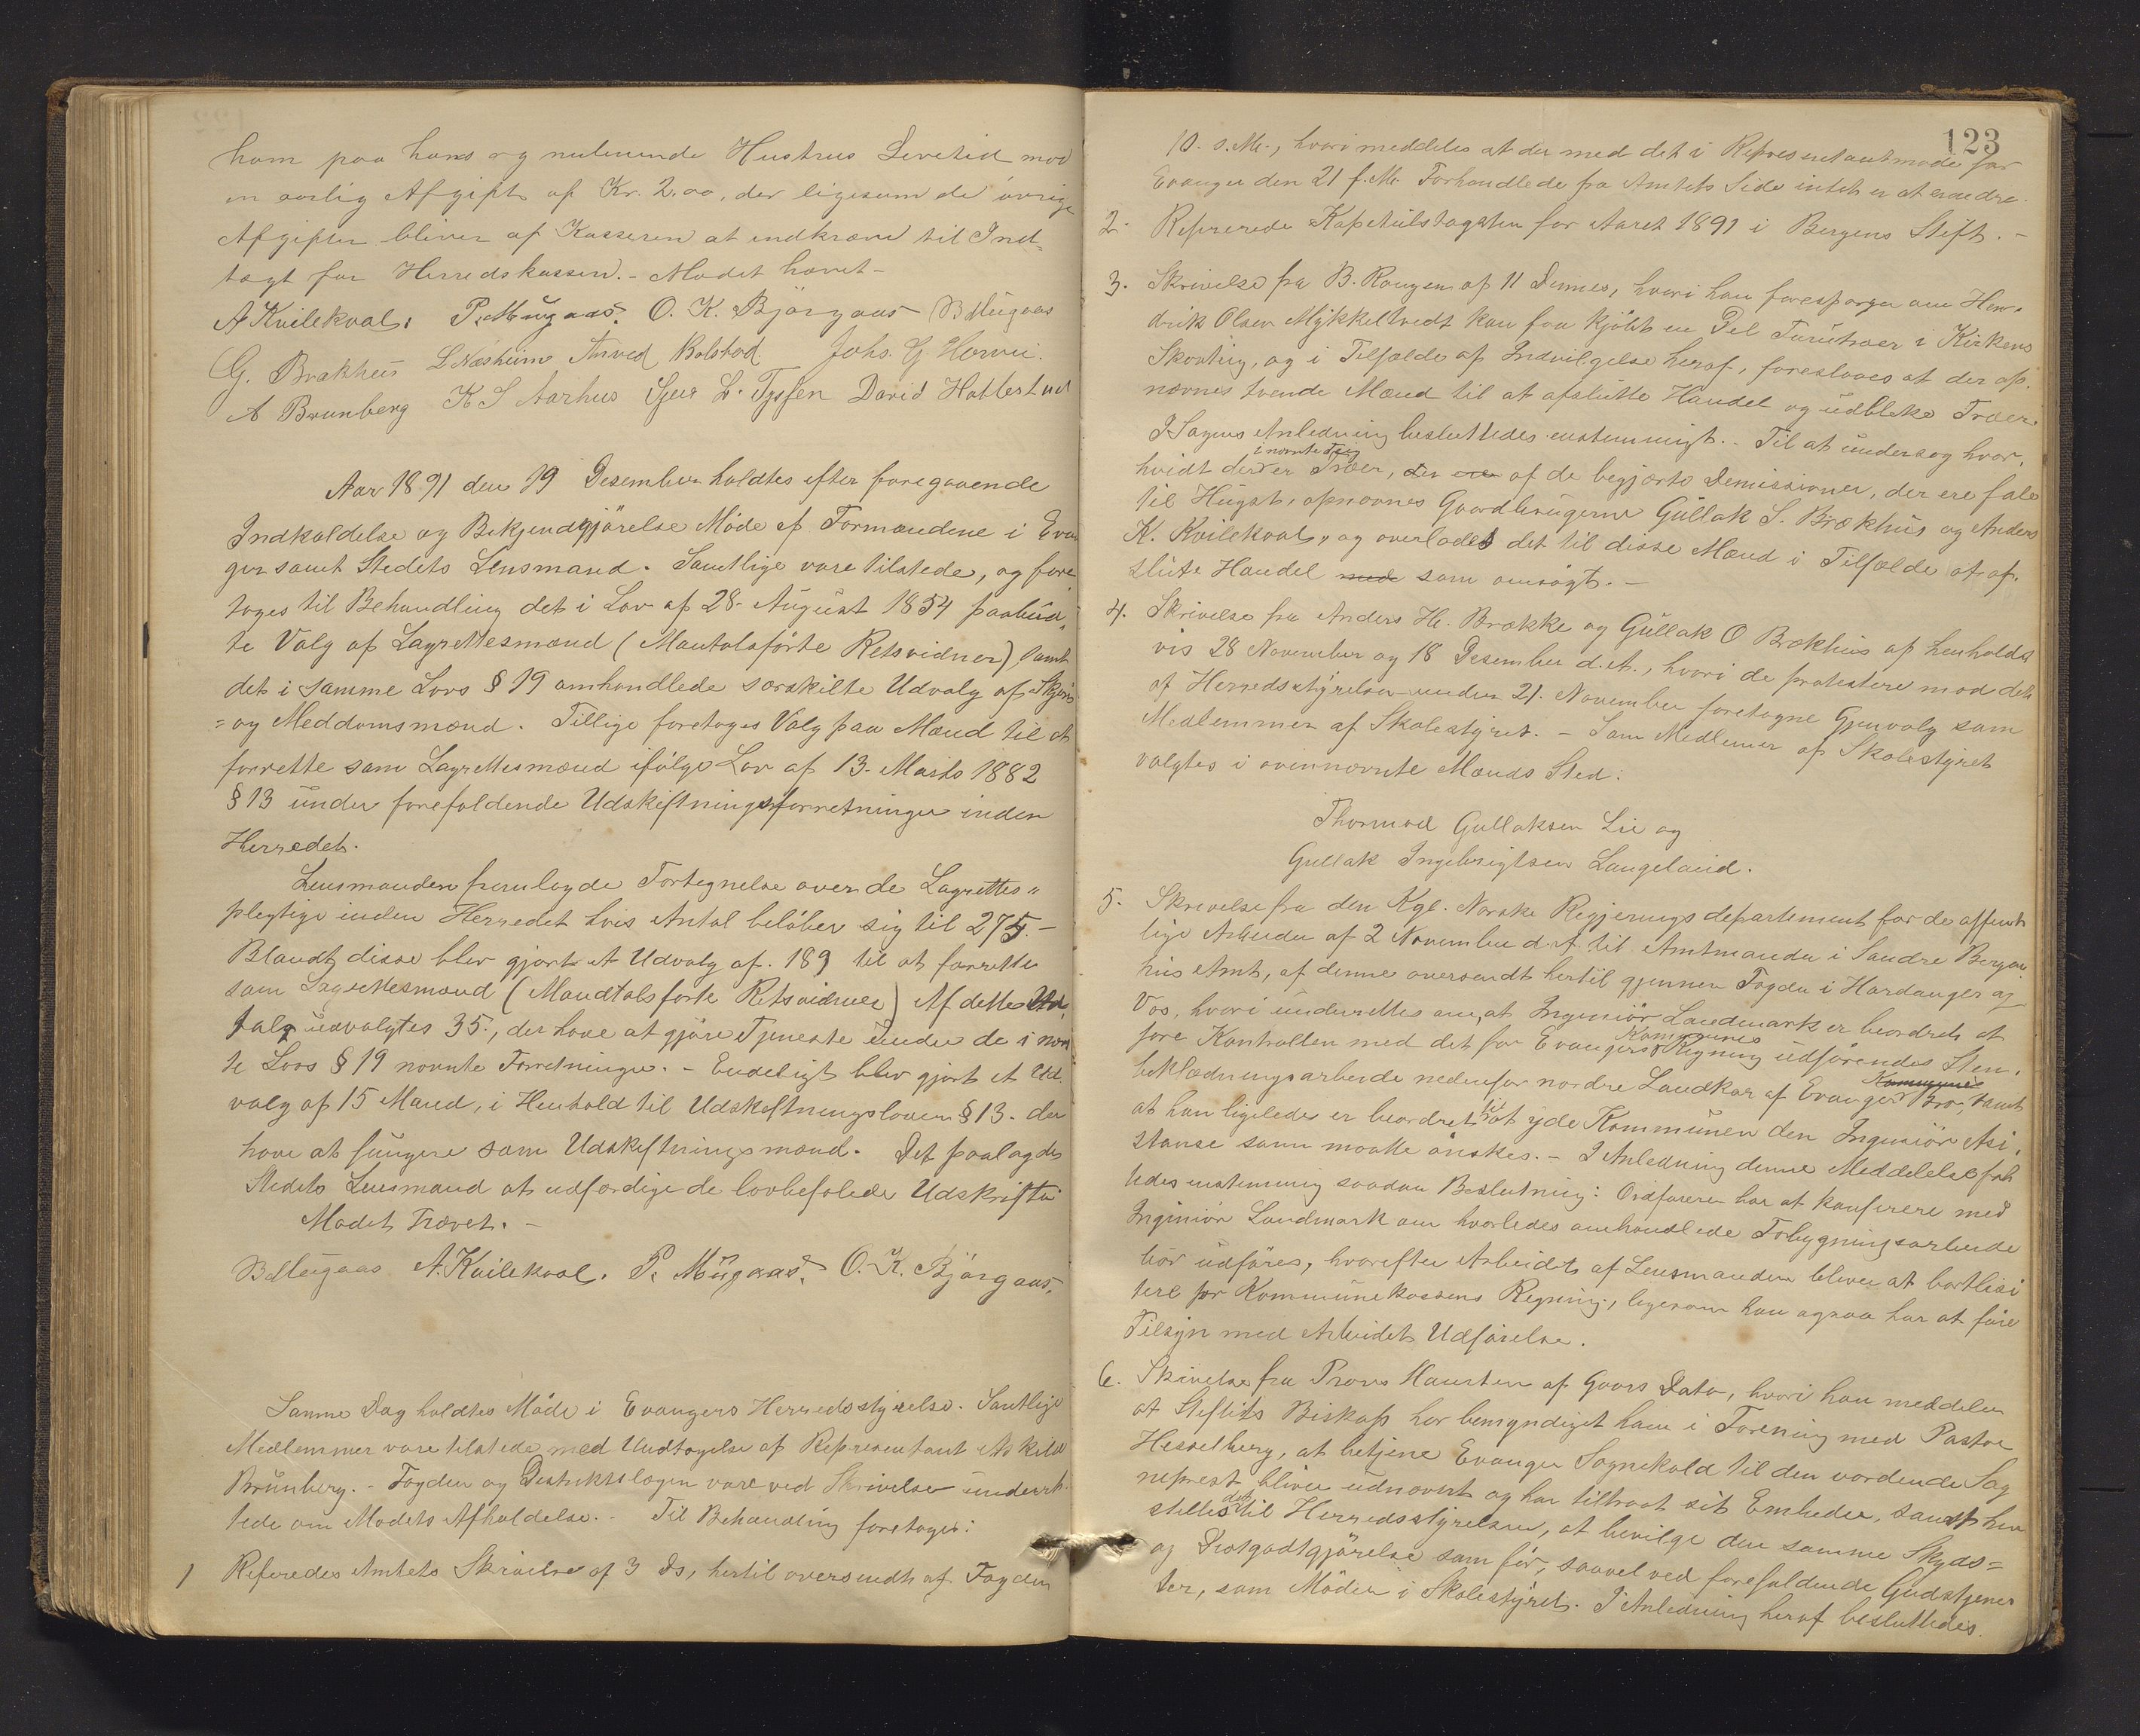 ham paa hans og nulevende Hustrus Levetid mod
en aarlig Afgift af Kr. 2.00, der ligesom de øvrige
Afgifter bliver af Kassereren at indkræve til Ind-
tægt for Herredskassen. - Mødet hævet -
A Kvilekval. P. Mügaas. O. K. Bjørgaas B Mügaas
G. Brakhus L Næsheim Anved Bolstad. Johs. G Horvei.
A Brunberg K S Aarhus Sjur L. Tyssen David Hatlestad
Aar 1891 den 19 Desember holdtes efter foregaaende
Indkaldelse og Bekjendtgjørelse Møde af Formændene i Evan
ger samt Stedets Lensmand. Samtlige vare tilstede, og fore
toges til Behandling det i Lov af 28. August 1854 paabud„
te Valg af Lagrettesmænd (Mantalsførte Retsvidner) samt
det i samme Lovs § 19 omhandlede særskilte Udvalg af Skjøns
= og Meddomsmænd. Tillige foretoges Valg paa Mænd til at
forrette som Lagrettesmænd ifølge Lov af 13. Marts 1882
§ 13 under forefaldende Udskiftningsforretninger inden
Herredet.
Lensmanden fremlagde Fortegnelse over de Lagrettes„
plegtige inden Herredet hvis Antal beløber sig til 275. -
Blandt disse blev gjort et Udvalg af. 189 til at forrette
som Lagrettesmænd (Mandtalsførte Retsvidner) Af dette Ud„
valg udvalgtes 35., der have at gjøre Tjeneste under de i nævn
te Lovs § 19 nævnte Forretninger. - Endeligt blev gjort et Ud.
valg af 15 Mænd, i Henhold til Udskiftningsloven § 13. der
have at fungere som Udskiftningsmænd. Det paalagdes
Stedets Lensmand at udfærdige de lovbefalede Udskrifter
Mødet Hævet. -
B Mügaas A. Kvilekval. P. Mügaas. O. K. Bjørgaas,
Samme Dag holdtes Møde i Evangers Herredsstyrelse. Samtlige
Medlemmer vare tilstede med Undtagelse af Representant Askild
Brunberg. - Fogden og Distriktslægen vare ved Skrivelse underret
tede om Mødets Afholdelse. - Til Behandling foretoges:
1 Referedes Amtets Skrivelse af 3 ds, hertil oversendt af Fogden
123
10. s. Mr., hvori meddeles at der med det i Representantmøde for
Evanger den 21 f. Mr. Forhandlede fra Amtets Side intet er at erindre.
2. Refererede Kapetelstagsten for Aaret 1891 i Bergens Stift. -
3. Skrivelse fra B. Rongen af 11 Dennes, hvori han foresparger om Hen„
drik Olsen Mykkeltvedt kan faa kjøbt en Del Furutræer i Kirkens
Skovteig, og i Tilfælde af Indvilgelse heraf, foreslaaes at der op„
nævnes tvende Mænd til at afslutte Handel og udblæke Træer.
I Sagens Anledning besluttedes enstemmigt. - Til at undersøg hvor„
i nævnte Teig
hvidt der er Træer, der ere af de begjærte Demissioner, der ere fale
til Hugst, opnævnes Gaardbrugerne Gullak S. Brækhus og Anders
K. Kvilekval, og overlades det til disse Mænd i Tilfælde at af„
slute Handel med som ansøgt. -
4. Skrivelse fra Anders H. Brække og Gullak O Brækhus af henholds
vis 28 November og 18 Desember d. A., hvori de protestere mod det
af Herredsstyrelsen under 21. November foretagne Gjenvalg som
Medlemmer af Skolestyret. - Som Medlemer af Skolestyret
valgtes i ovennævnte Mænds Sted:
Thormod Gullaksen Lie og
Gullak Ingebrigtsen Langeland.
5. Skrivelse fra den Kgl. Norske Regjerings departement for de offent
lige Arbeider af 2 November d. A. til Amtmanden i Søndre Bergen
hus Amt, af denne oversendt hertil gjennem Fogden i Hardanger og
Vos, hvori underrettes om, at Ingeniør Landmark er beordret at
Kommunes
føre Kontrollen med det for Evangers Regning udførendes Sten„
Kommunes
beklædningsarbeide nedenfor nordre Landkar af Evanger Bro, samt
at han ligeledes er beordret til at yde Kommunen den Ingeniør Asi„
stanse som maatte ønskes. - I Anledning denne Meddelelse fat
tedes enstemmig saadan Beslutning: Ordføreren har at konferere med
Ingeniør Landmark om hvorledes omhandlede Forbygningsarbeide
bør udføres, hvorefter Arbeidet af Lensmanden bliver at bortlisi
tere for Kommunekassens Regning, ligesom han ogsaa har at føre
Tilsyn med Arbeidets Udførelse.
6. Skivelse fra Provs Maurten af Gaars Dato, hvori han meddeler
at Steftets Biskop har bemyndiget ham i Forening med Pastor
Hesselberg, at betjene Evanger Sognekald til den vordende Sog
neprest bliver udnævnt og har tiltraadt sit Embede, samt hen
stilles det til Herredsstyrelsen, at bevilge den samme Skyds=
og Diætgodtgjørelse som før, saavel ved forefaldende Gudstjenes
ter, som Møder i Skolestyret. I Anledning heraf besluttedes.